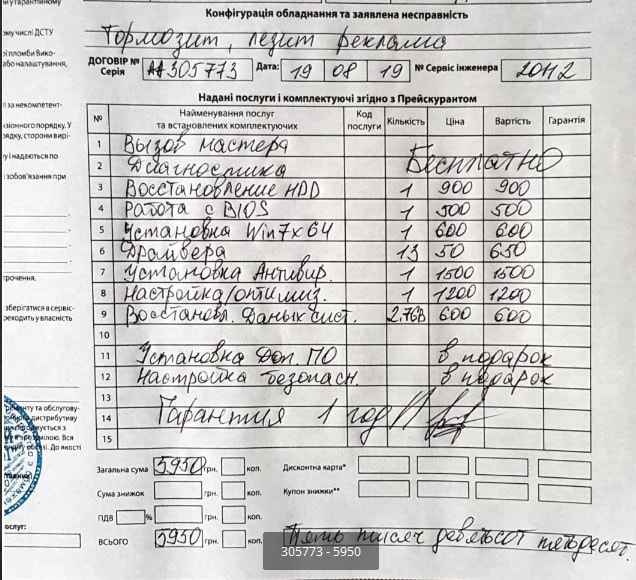 Конфігурація обладнання та заявлена несправність
Тормозит, лезит реклама
ДОГОВІР № Серія АА305773 Дата: 19 08 19 № Сервіс інженера 20112
Надані послуги і комплектуючі згідно з Прейскурантом
№ Найменування послуг та встановлених комплектуючих Код послуги Кількість Ціна Вартість Гарантія
1 Вызов мастера
2 Диагностика Бесплатно
3 Восстановление HDD 1 900 900
4 Работа с BIOS 1 500 500
5 Установка Win7x64 1 600 600
6 Драйвера 13 50 650
7 Установка Антивир. 1 1500 1500
8 Настройка/оптимиз. 1 1200 1200
9 Восстановл. Даных сист. 2,7GB 600 600
10
11 Установка Доп. ПО в подарок
12 Настройка безопасн. в подарок
13
14 Гарантия 1 год
15
Загальна сума 5950 грн. коп. Дисконтна карта*
Сума знижок грн. коп. Купон знижки**
ПДВ % грн. коп.
ВСЬОГО 5950 грн. коп. Пять тысяч девятсот пятьдесят.
305773 - 5950
ому числі ДСТУ
зі пломби Вико-
або налаштування,
і за некомпетент-
зіонного порядку. У
рядку, сторони вирі-
у і надаються по
і зобов'язання при
трочення,
зберігатися в сервіс-
реходить у власність
ремонту та обслугову-
дистрибутиву
Вся
До якості
ослуг: